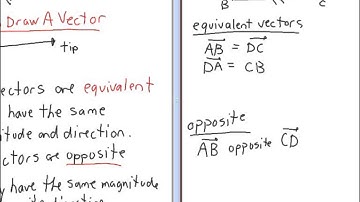 Draw A Vector
tip
ectors are equivalent
have the same
itude and direction.
ctors are opposite
y have the same magnitude
B
C
equivalent vectors
AB = DC
DA = CB
opposite
AB opposite CD